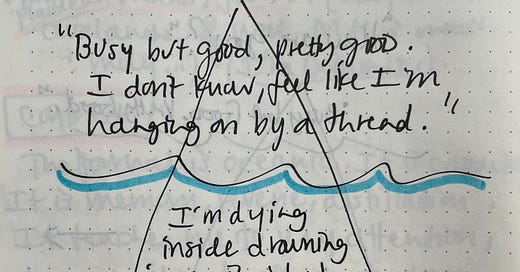 "Busy but good, pretty good.
I don't know, feel like I'm
hanging on by a thread."
I'm dying
inside drowning